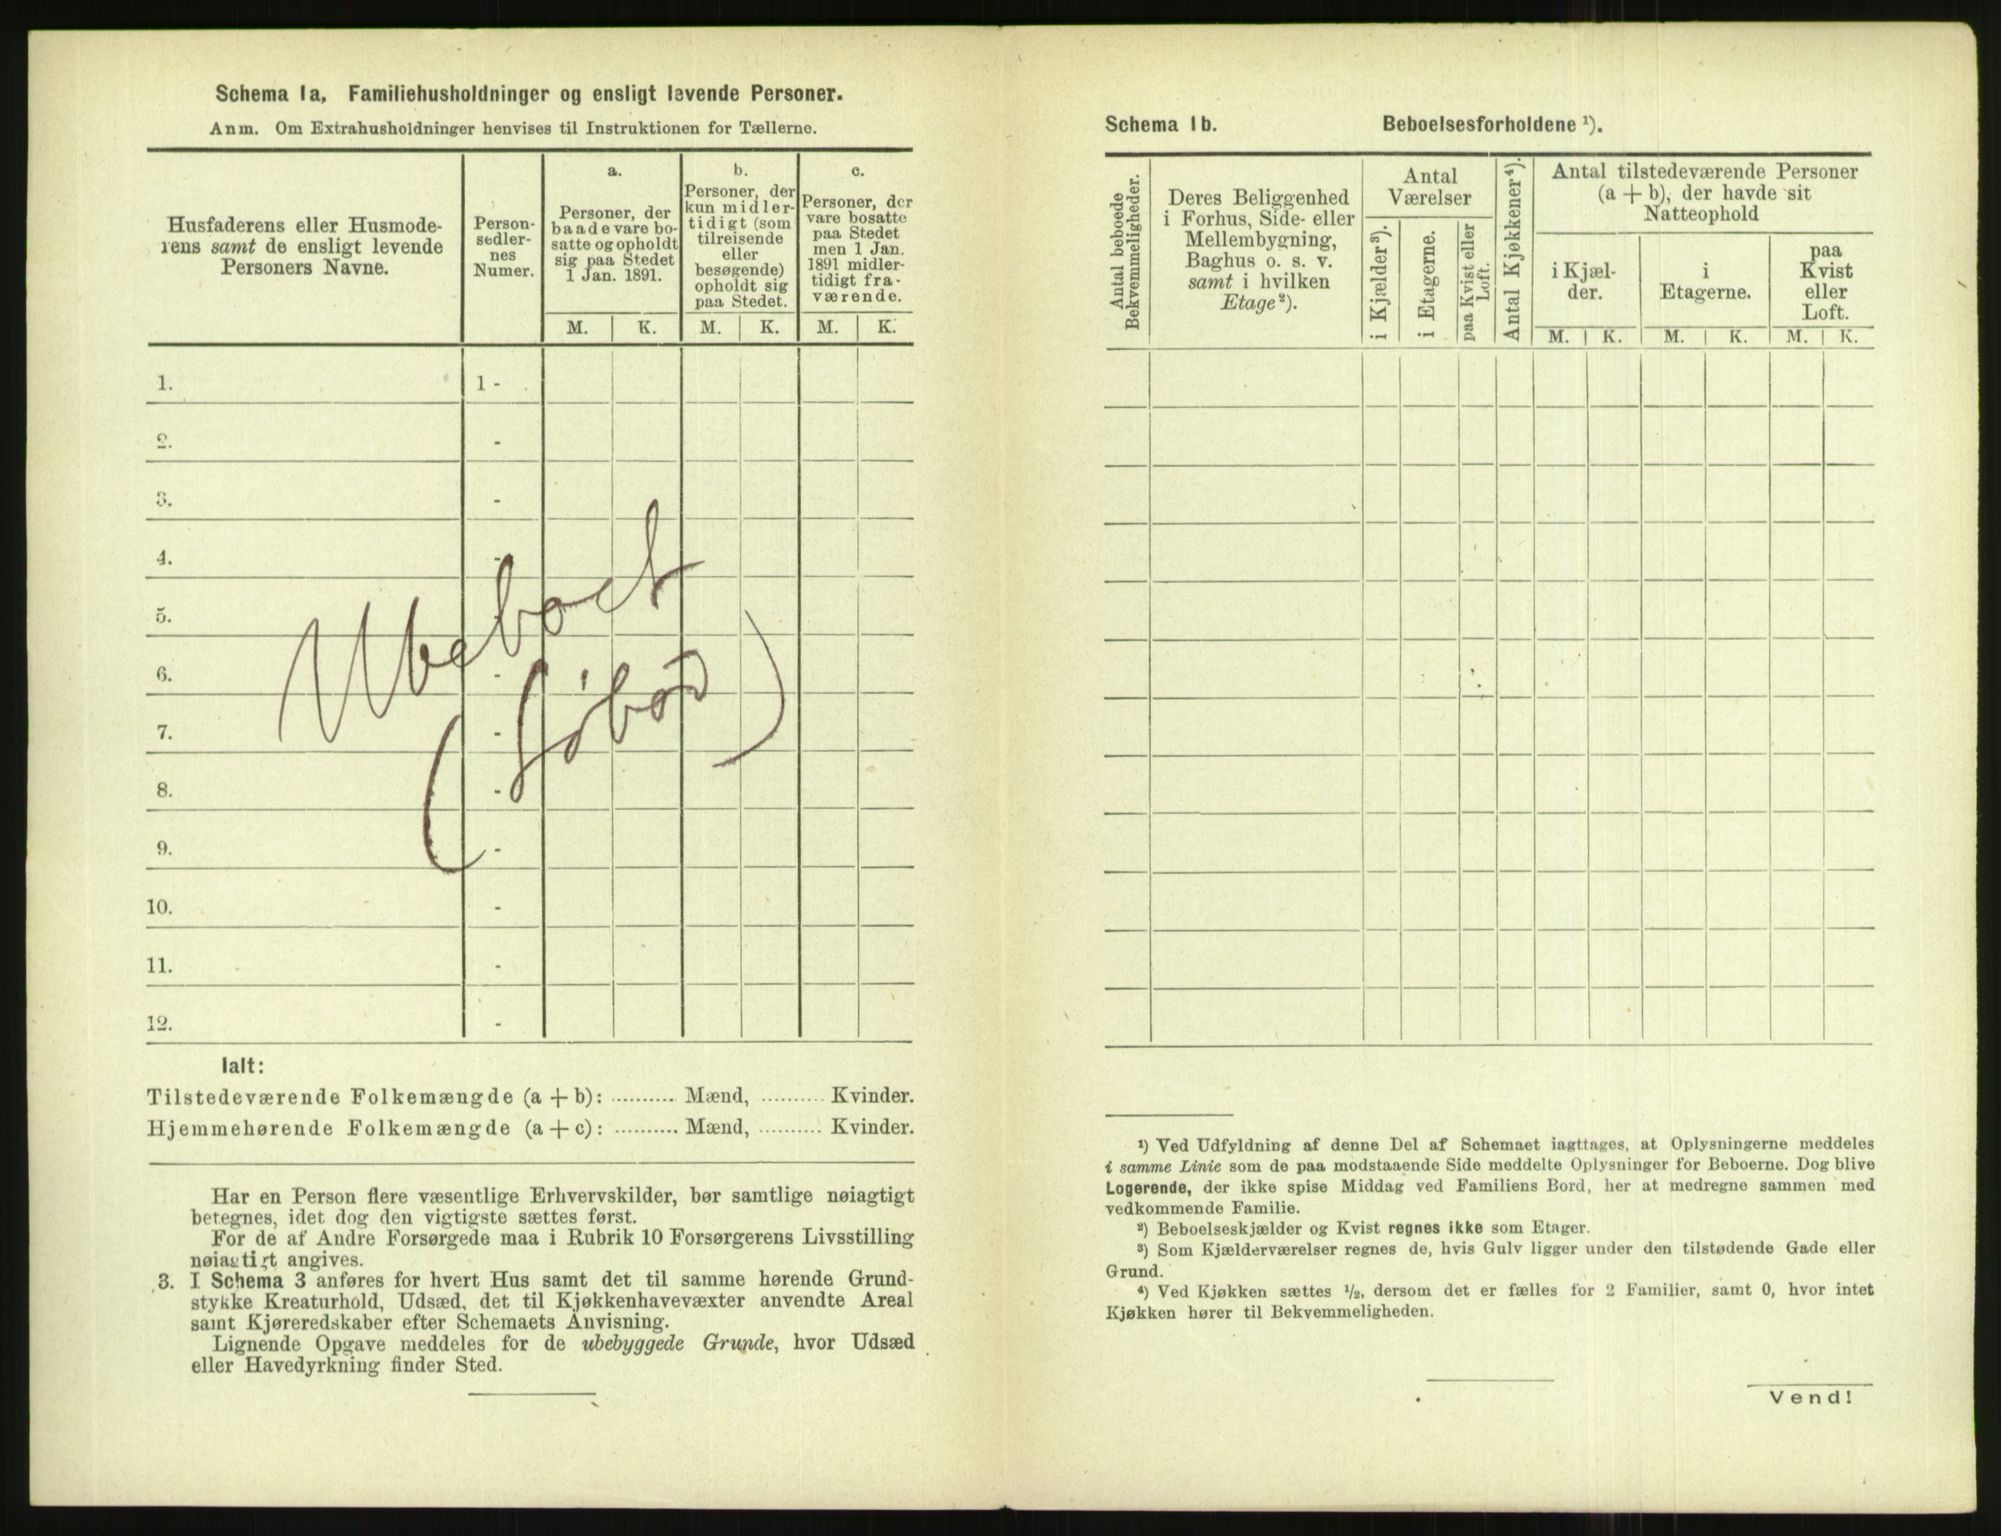 Schema 1a, Familiehusholdninger og ensligt levende Personer.
Anm. Om Extrahusholdninger henvises til Instruktionen for Tællerne.
Husfaderens eller Husmode-
rens samt de ensligt levende
Personers Navne.
Person-
sedler-
nes
Numer.
a.
Personer, der
baade vare bo-
satte og opholdt
sig paa Stedet
1 Jan. 1891.
b.
Personer, der
kun midler-
tidigt (som
tilreisende
eller
besøgende)
opholdt sig
paa Stedet.
c.
Personer, der
vare bosatte
paa Stedet
men 1 Jan.
1891 midler-
tidigt fra-
værende.
M. K. M. K. M. K.
1. 1 -
2. -
3. -
4. -
5.
6. -
7. -
8. -
9. -
10. -
11. -
12. -
Ubeboet
(Søbod)
Ialt:
Tilstedeværende Folkemængde (a + b): .......... Mænd, .......... Kvinder.
Hjemmehørende Folkemængde (a + c): .......... Mænd, .......... Kvinder.
Har en Person flere væsentlige Erhvervskilder, bør samtlige nøiagtigt
betegnes, idet dog den vigtigste sættes først.
For de af Andre Forsørgede maa i Rubrik 10 Forsørgerens Livsstilling
nøiagtigt angives.
3. I Schema 3 anføres for hvert Hus samt det til samme hørende Grund-
stykke Kreaturhold, Udsæd, det til Kjøkkenhavevæxter anvendte Areal
samt Kjøreredskaber efter Schemaets Anvisning.
Lignende Opgave meddeles for de ubebyggede Grunde, hvor Udsæd
eller Havedyrkning finder Sted.
Schema 1b. Beboelsesforholdene ¹).
Antal beboede
Bekvemmeligheder.
Deres Beliggenhed
i Forhus, Side- eller
Mellembygning,
Baghus o. s. v.
samt i hvilken
Etage²).
Antal
Værelser
i Kjælder³).
i Etagerne.
paa Kvist eller
Loft.
Antal Kjøkkener⁴).
Antal tilstedeværende Personer
(a + b), der havde sit
Natteophold
i Kjæl-
der.
i
Etagerne.
paa
Kvist
eller
Loft.
M. K. M. K. M. K.
¹) Ved Udfyldning af denne Del af Schemaet iagttages, at Oplysningerne meddeles
i samme Linie som de paa modstaaende Side meddelte Oplysninger for Beboerne. Dog blive
Logerende, der ikke spise Middag ved Familiens Bord, her at medregne sammen med
vedkommende Familie.
²) Beboelseskjælder og Kvist regnes ikke som Etager.
³) Som Kjælderværelser regnes de, hvis Gulv ligger under den tilstødende Gade eller
Grund.
⁴) Ved Kjøkken sættes ¹/₂, dersom det er fælles for 2 Familier, samt 0, hvor intet
Kjøkken hører til Bekvemmeligheden.
Vend!